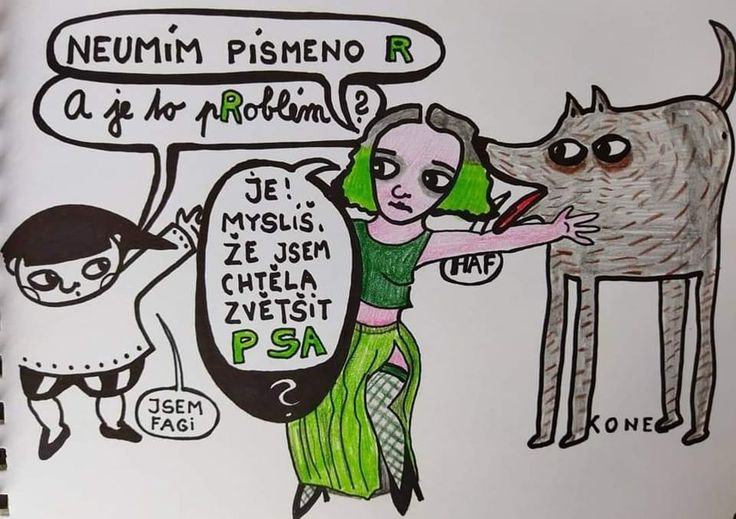 NEUMÍM PÍSMENO R
A je to pRoblém?
JE!
MYSLÍŠ,
ŽE JSEM
CHTĚLA
ZVĚTŠIT
PSA
?
HAF
JSEM
FAGI
KONEC